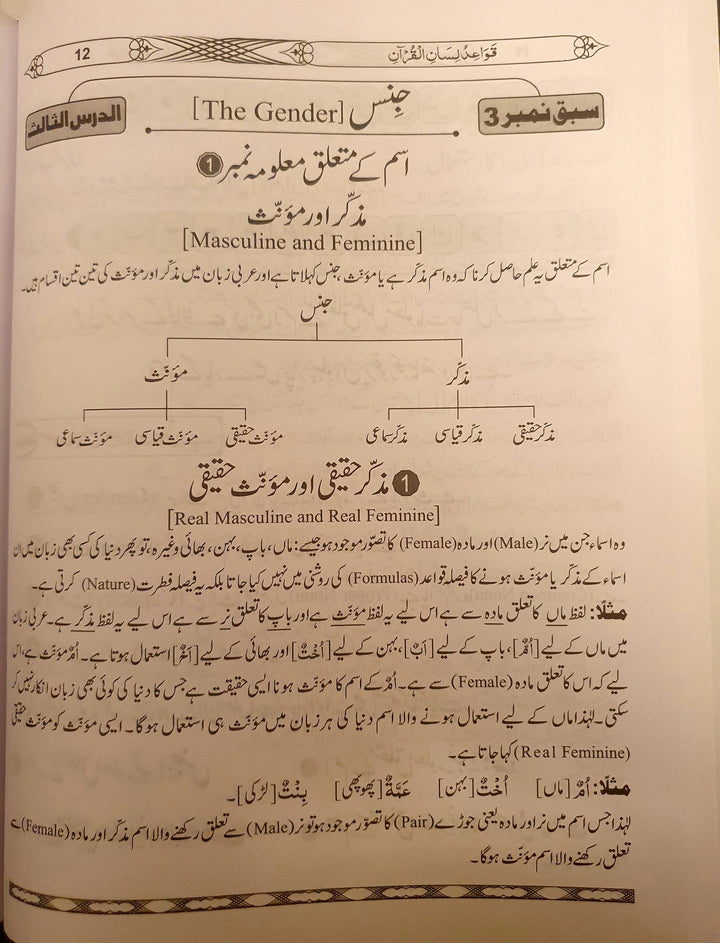 قَوَاعِدُ لِسَانِ الْقُرْآن 12
سبق نمبر 3 جِنس [The Gender] الدرس الثالث
اسم کے متعلق معلومہ نمبر 1
مذکّر اور مؤنّث
[Masculine and Feminine]
اسم کے متعلق یہ علم حاصل کرنا کہ وہ اسم مذکّر ہے یا مؤنّث، جنس کہلاتا ہے اور عربی زبان میں مذکّر اور مؤنّث کی تین تین اقسام ہیں۔
جنس
مذکّر مؤنّث
مذکّر حقیقی مذکّر قیاسی مذکّر سماعی مؤنّث حقیقی مؤنّث قیاسی مؤنّث سماعی
1 مذکّر حقیقی اور مؤنّث حقیقی
[Real Masculine and Real Feminine]
وہ اسماء جن میں نر (Male) اور مادہ (Female) کا تصوّر موجود ہو جیسے: ماں، باپ، بہن، بھائی وغیرہ، تو پھر دنیا کی کسی بھی زبان میں ان
اسماء کے مذکّر یا مؤنّث ہونے کا فیصلہ قواعد (Formulas) کی روشنی میں نہیں کیا جاتا بلکہ یہ فیصلہ فطرت (Nature) کرتی ہے۔
مثلًا: لفظ ماں کا تعلق مادہ سے ہے اس لیے یہ لفظ مؤنّث ہے اور باپ کا تعلق نر سے ہے اس لیے یہ لفظ مذکّر ہے۔ عربی زبان
میں ماں کے لیے [اُمٌّ]، باپ کے لیے [اَبٌ]، بہن کے لیے [اُخْتٌ] اور بھائی کے لیے [اَخٌ] استعمال ہوتا ہے۔ اُمٌّ مؤنّث ہے، اس
لیے کہ اس کا تعلق مادہ (Female) سے ہے۔ اُمٌّ کے اسم کا مؤنّث ہونا ایسی حقیقت ہے جس کا دنیا کی کوئی بھی زبان انکار نہیں کر
سکتی۔ لہٰذا ماں کے لیے استعمال ہونے والا اسم دنیا کی ہر زبان میں مؤنّث ہی استعمال ہوگا۔ ایسی مؤنّث کو مؤنّث حقیقی
(Real Feminine) کہا جاتا ہے۔
مثلًا: اُمٌّ [ماں] اُخْتٌ [بہن] عَمَّةٌ [پھوپھی] بِنْتٌ [لڑکی]۔
لہٰذا جس اسم میں نر اور مادہ یعنی جوڑے (Pair) کا تصوّر موجود ہو تو نر (Male) سے تعلق رکھنے والا اسم مذکّر اور مادہ (Female) سے
تعلق رکھنے والا اسم مؤنّث ہوگا۔